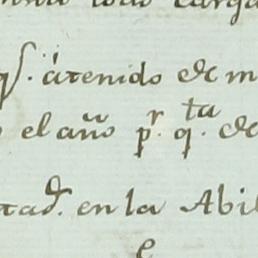 toda carga
qͤ. átenido de m
el año pʳ. qᵗᵃ. de
tad. en la Abil